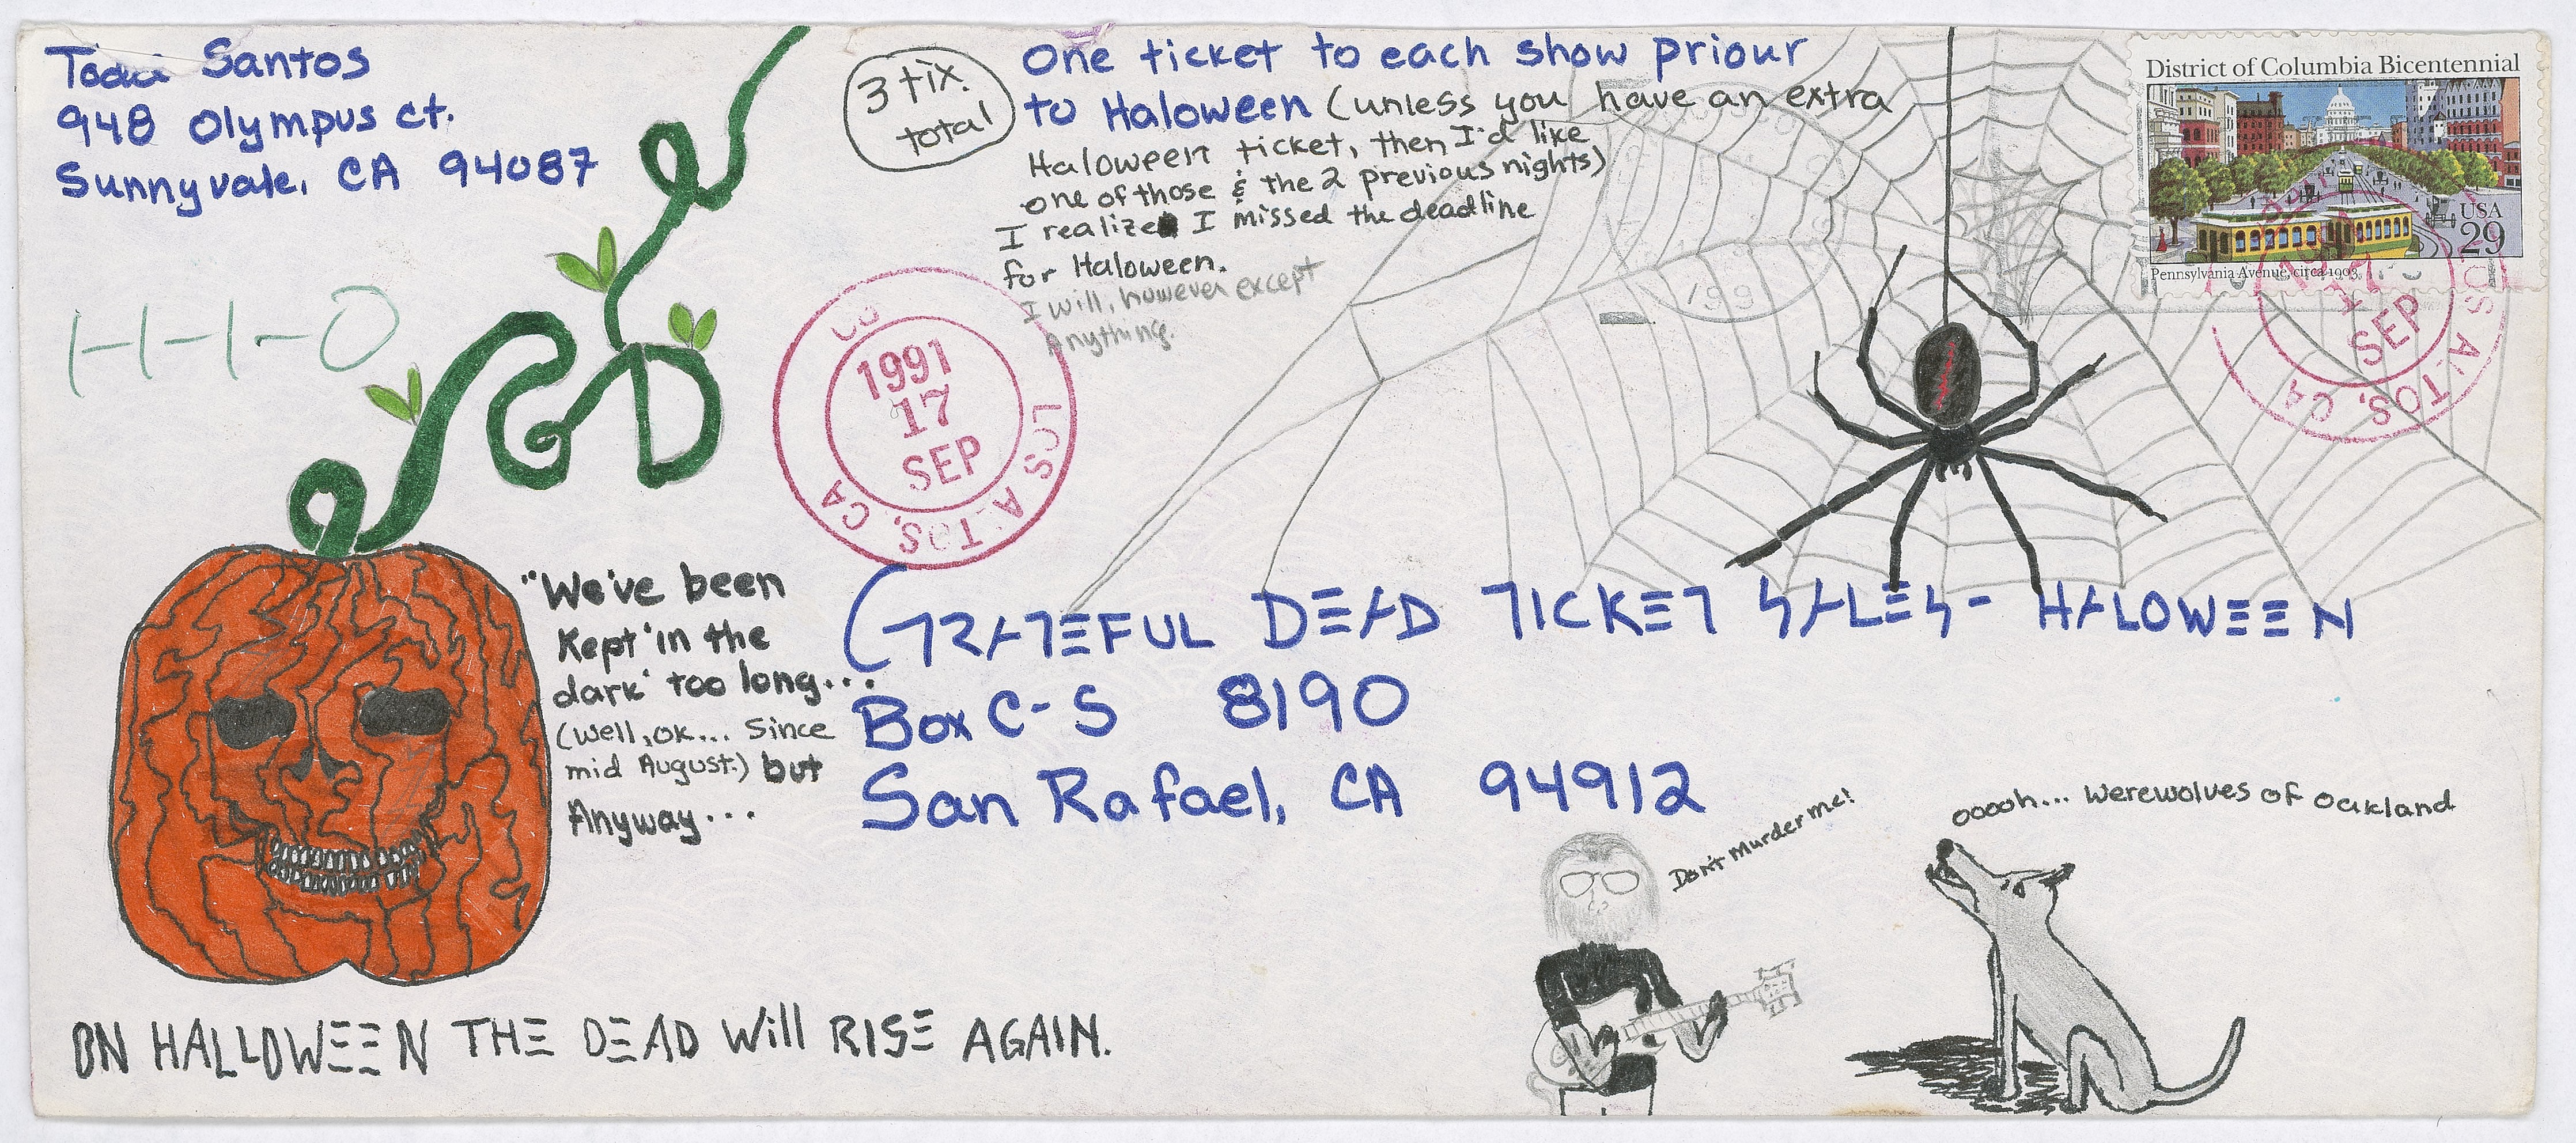 Todd Santos
948 Olympus ct.
Sunnyvale, CA 94087
3 tix.
total
One ticket to each show priour
to Haloween (unless you have an extra
Haloween ticket, then I'd like
one of those & the 2 previous nights)
I realize I missed the deadline
for Haloween.
I will, however except
Anything.
District of Columbia Bicentennial
USA
29
Pennsylvania Avenue, circa 1903
H-I-O
GD
1991
17
SEP
LOS ALTOS, CA
17
SEP
LOS ALTOS, CA
"We've been
Kept 'in the
dark' too long...
(Well, ok... Since
mid August.) but
Anyway...
GRATEFUL DEAD TICKET SALES- HALOWEEN
Box C-S 8190
San Rafael, CA 94912
Don't Murder me!
ooooh... Werewolves of Oakland
ON HALLOWEEN THE DEAD Will RISE AGAIN.